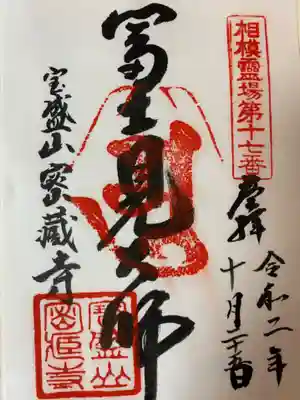 相模霊場第十七番
登拝
令和二年
十月二十五日
冨士見大師
宝盛山密蔵寺
寶盛山
密蔵寺